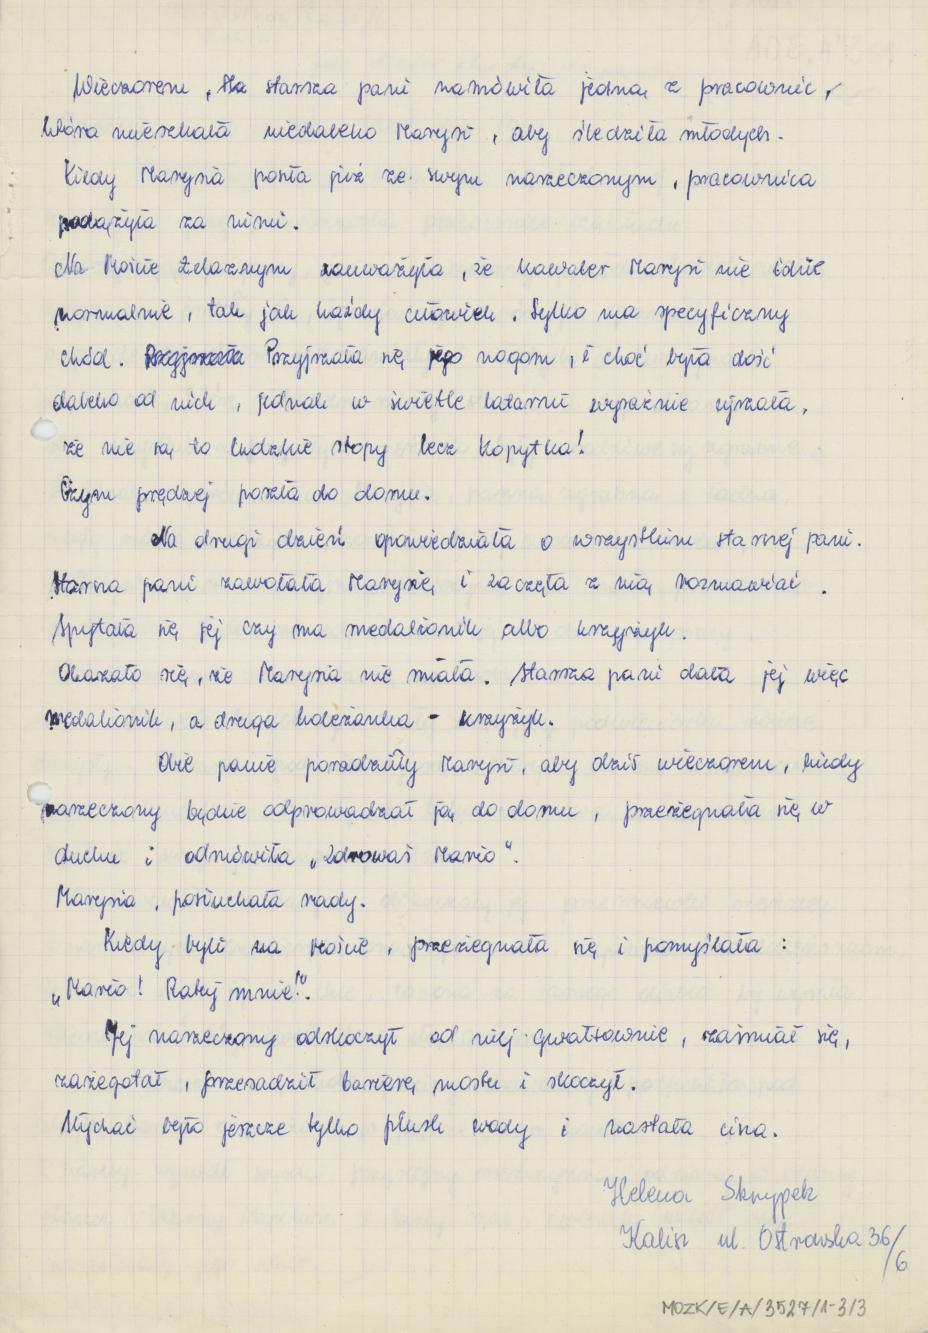 Wieczorem, ta starsza pani namówiła jedną z pracownic,
która mieszkała niedaleko Marysi, aby śledziła młodych.
Kiedy Marysia poszła już ze swym narzeczonym, pracownica
podążyła za nimi.
Na Moście Żelaznym, zauważyła, że kawaler Marysi nie idzie
normalnie, tak jak każdy człowiek. Tylko ma specyficzny
chód. Przyjrzała Przyjrzała się jego nogom, i choć była dość
daleko od nich, jednak w świetle latarni wyraźnie ujrzała,
że nie są to ludzkie stopy lecz kopytka!
Czym prędzej poszła do domu.
Na drugi dzień opowiedziała o wszystkim starszej pani.
Starsza pani zawołała Marysię i zaczęła z nią rozmawiać.
Spytała się jej czy ma medalionik albo krzyżyk.
Okazało się, że Marysia nie miała. Starsza pani dała jej więc
medalionik, a druga koleżanka - krzyżyk.
Obie panie poradziły Marysi, aby dziś wieczorem, kiedy
narzeczony będzie odprowadzał ją do domu, przeżegnała się w
duchu i odmówiła „Zdrowaś Mario".
Marysia, posłuchała rady.
Kiedy byli na moście, przeżegnała się i pomyślała:
„Mario! Ratuj mnie!".
Jej narzeczony odskoczył od niej gwałtownie, zaśmiał się,
zarzegotał, przesadził barierę mostu i skoczył.
Słychać było jeszcze tylko plusk wody i nastała cisza.
Helena Skrzypek
Kalisz ul. Ostrowska 36/6
MOZK/E/A/3527/1-3/3